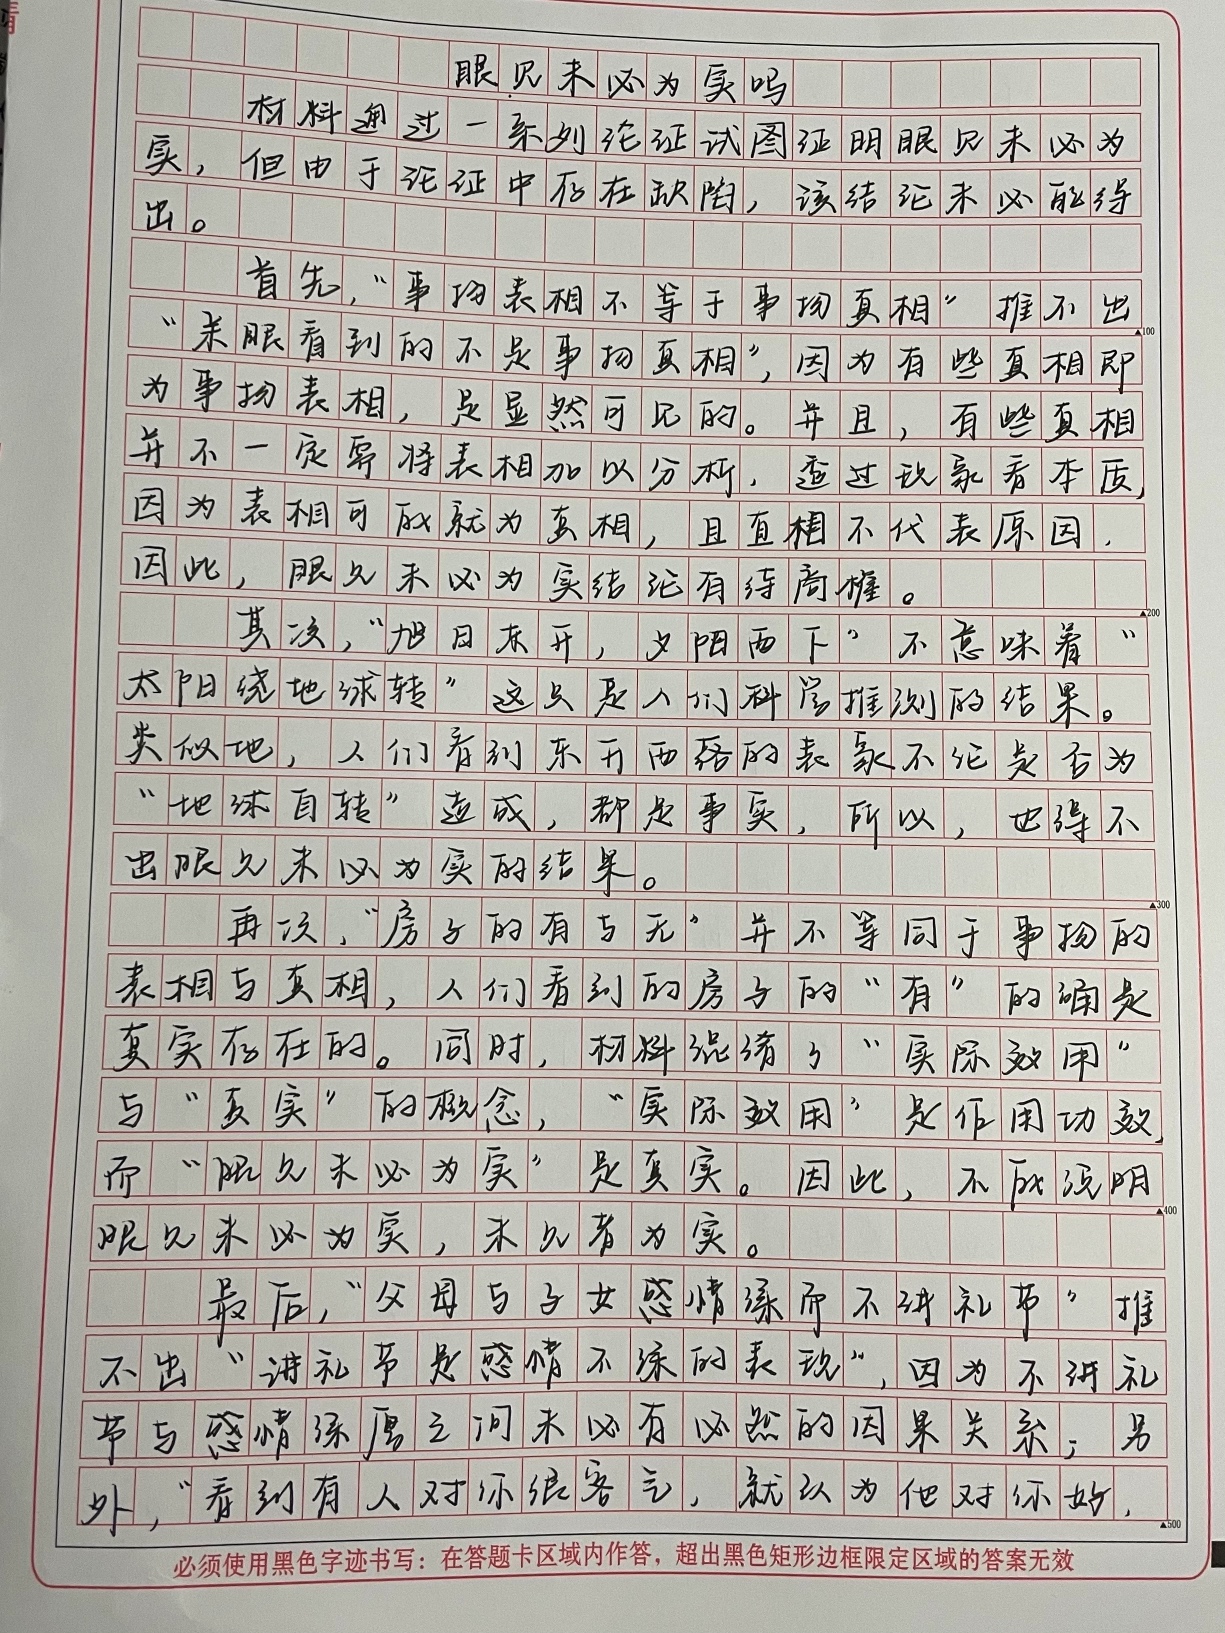 眼见未必为实吗
材料通过一系列论证试图证明眼见未必为
实，但由于论证中存在缺陷，该结论未必能得
出。
首先，“事物表相不等于事物真相”推不出
“亲眼看到的不是事物真相”，因为有些真相即
为事物表相，是显然可见的。并且，有些真相
并不一定需将表相加以分析，透过现象看本质，
因为表相可能就为真相，且真相不代表原因，
因此，眼见未必为实结论有待商榷。
▲100
▲200
其次，“旭日东升，夕阳西下”不意味着“
太阳绕地球转”这只是人们科学推测的结果。
类似地，人们看到东升西落的表象不论是否为
“地球自转”造成，都是事实，所以，也得不
出眼见未必为实的结果。
▲300
再次，“房子的有与无”并不等同于事物的
表相与真相，人们看到的房子的“有”的确是
真实存在的。同时，材料混淆了“实际效用”
与“真实”的概念，“实际效用”是作用功效，
而“眼见未必为实”是真实。因此，不能说明
▲400
眼见未必为实，未见者为实。
最后，“父母与子女感情深而不讲礼节”推
不出“讲礼节是感情不深的表现”，因为不讲礼
节与感情深厚之间未必有必然的因果关系；另
外，“看到有人对你很客气，就认为他对你好，
▲500
必须使用黑色字迹书写：在答题卡区域内作答，超出黑色矩形边框限定区域的答案无效